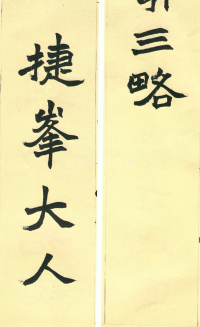 三略
捷峯大人